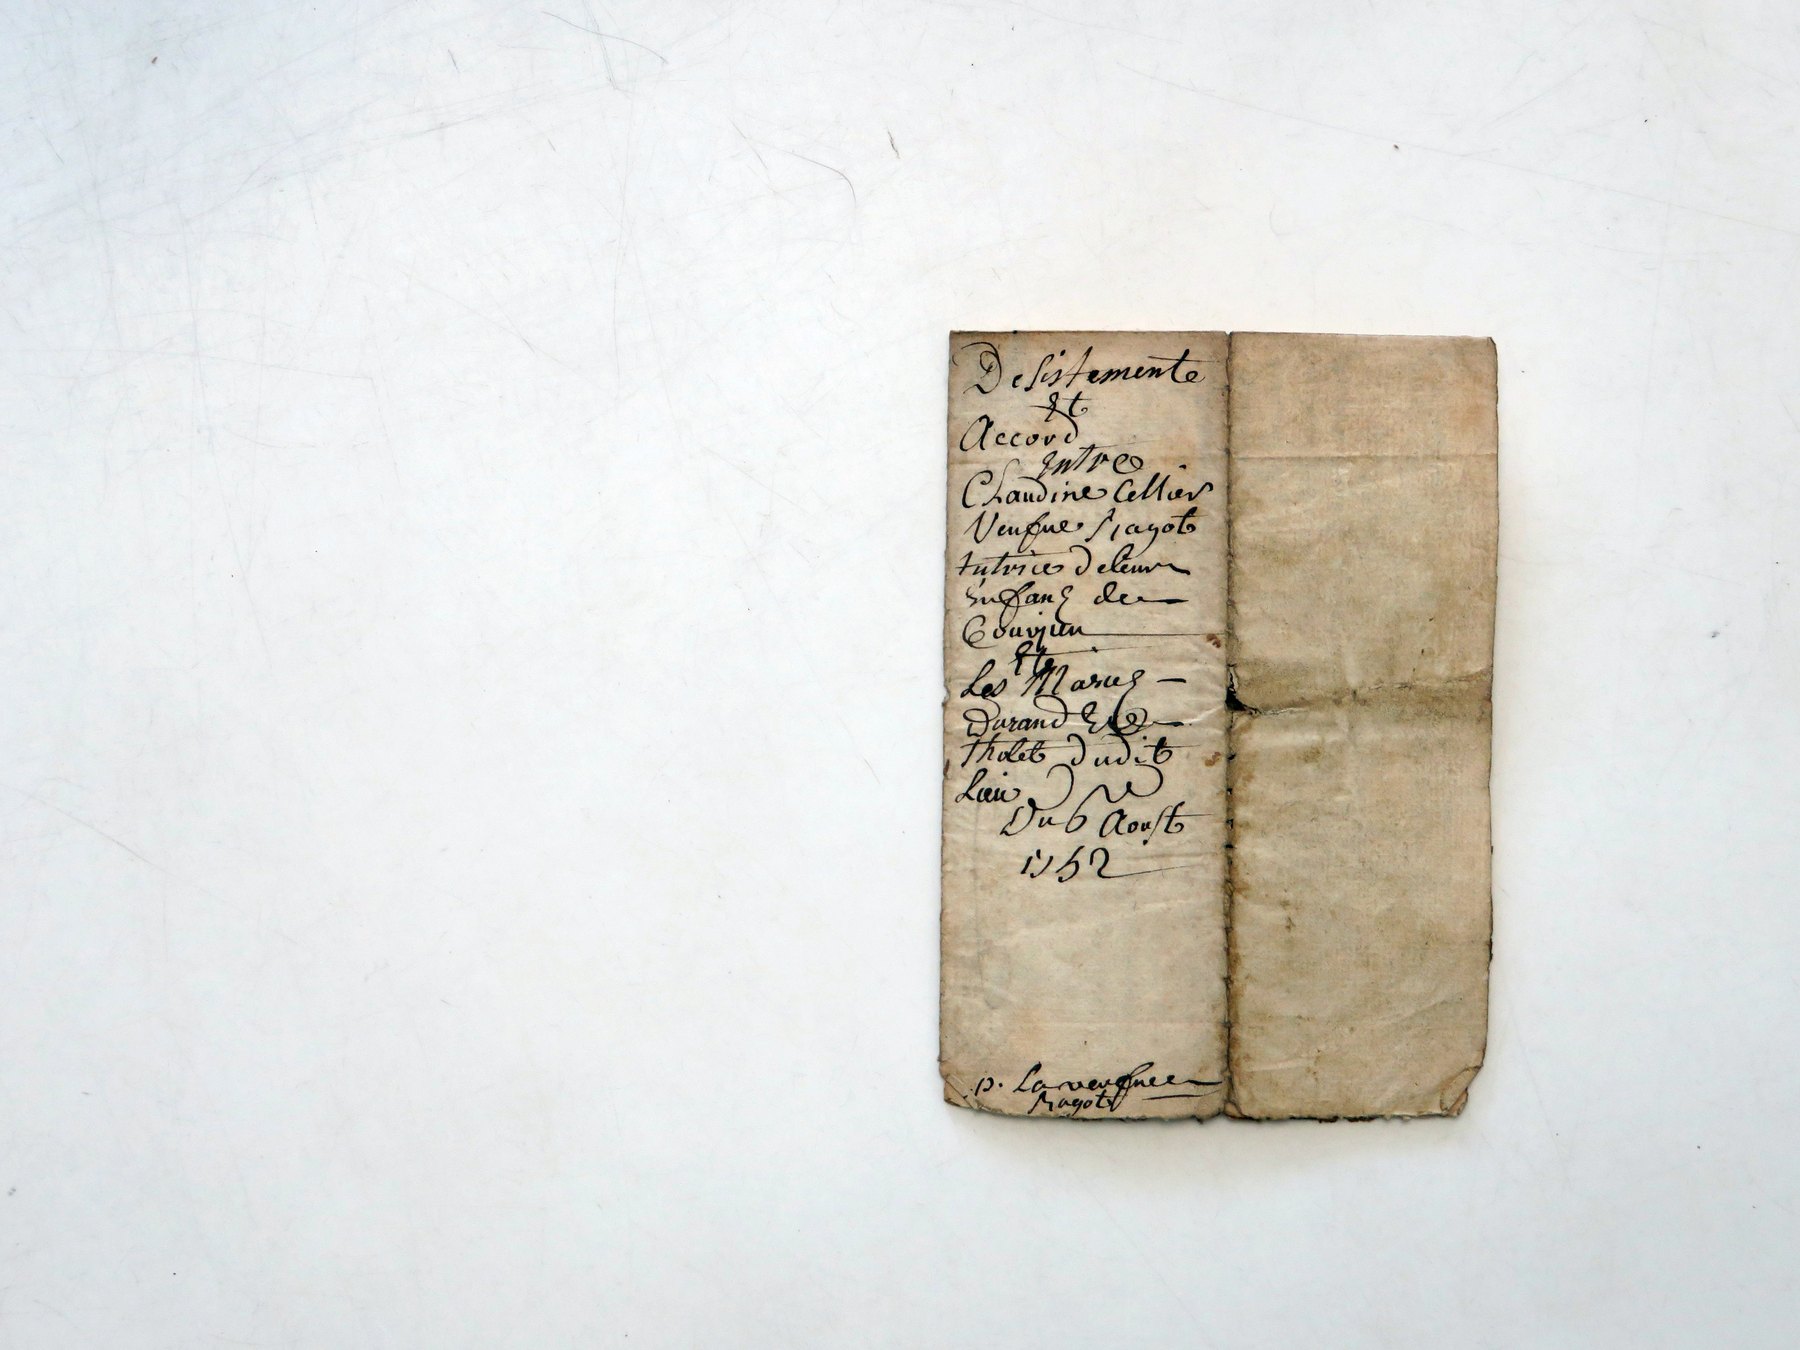 Desistemente
Et
Accord
Entre
Claudine Cellier
Veufue Ragot
tutrice de leurs
Enfanz de
Et
Les Mariez
Durand Et
Tholet dudit
Lieu
Du 6 Aoust
1752
p. La veufuee
Ragot